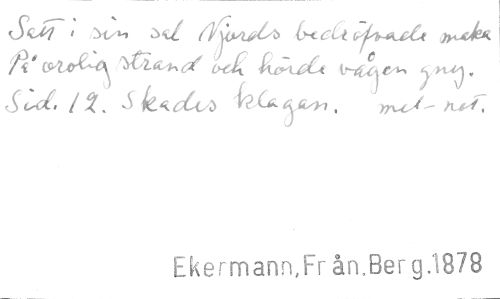 Satt i sin sal Njords bedröfvade maka
På orolig strand och hörde vågen gny.
Sid. 12. Skades klagan. mel-not.
Ekermann, Från. Berg. 1878